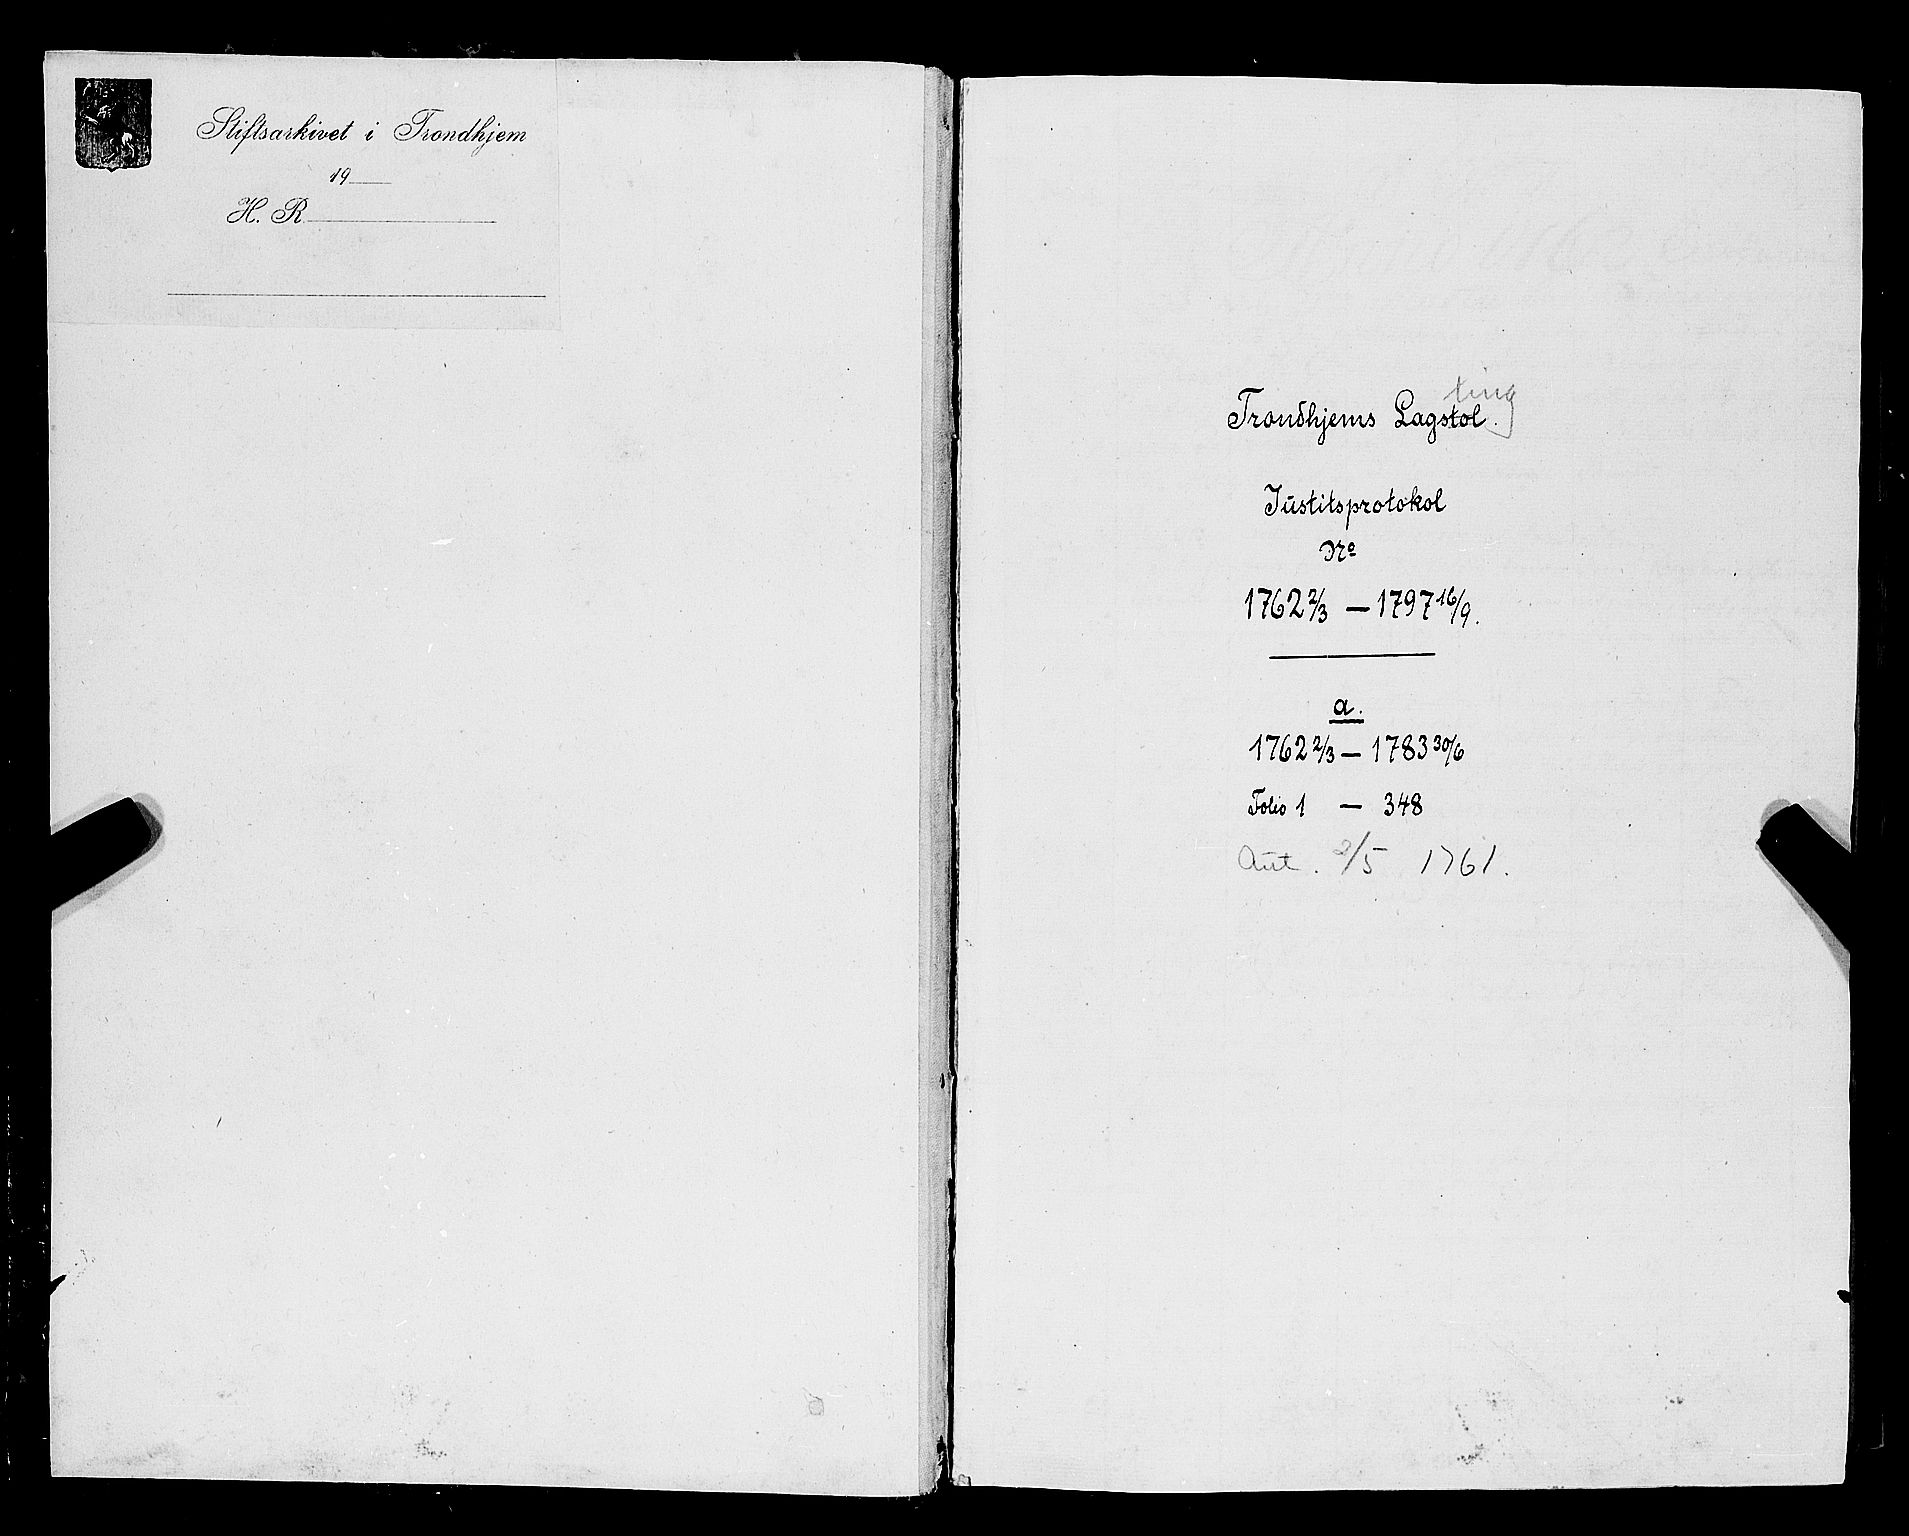 Stiftsarkivet i Trondhjem
19
H. R.
ting
Trondhjems Lagstol.
Justitsprotokol
No
1762 2/3 — 1797 16/9.
a.
1762 2/3 — 1783 30/6
Folio 1 — 348
Aut. 2/5 1761.